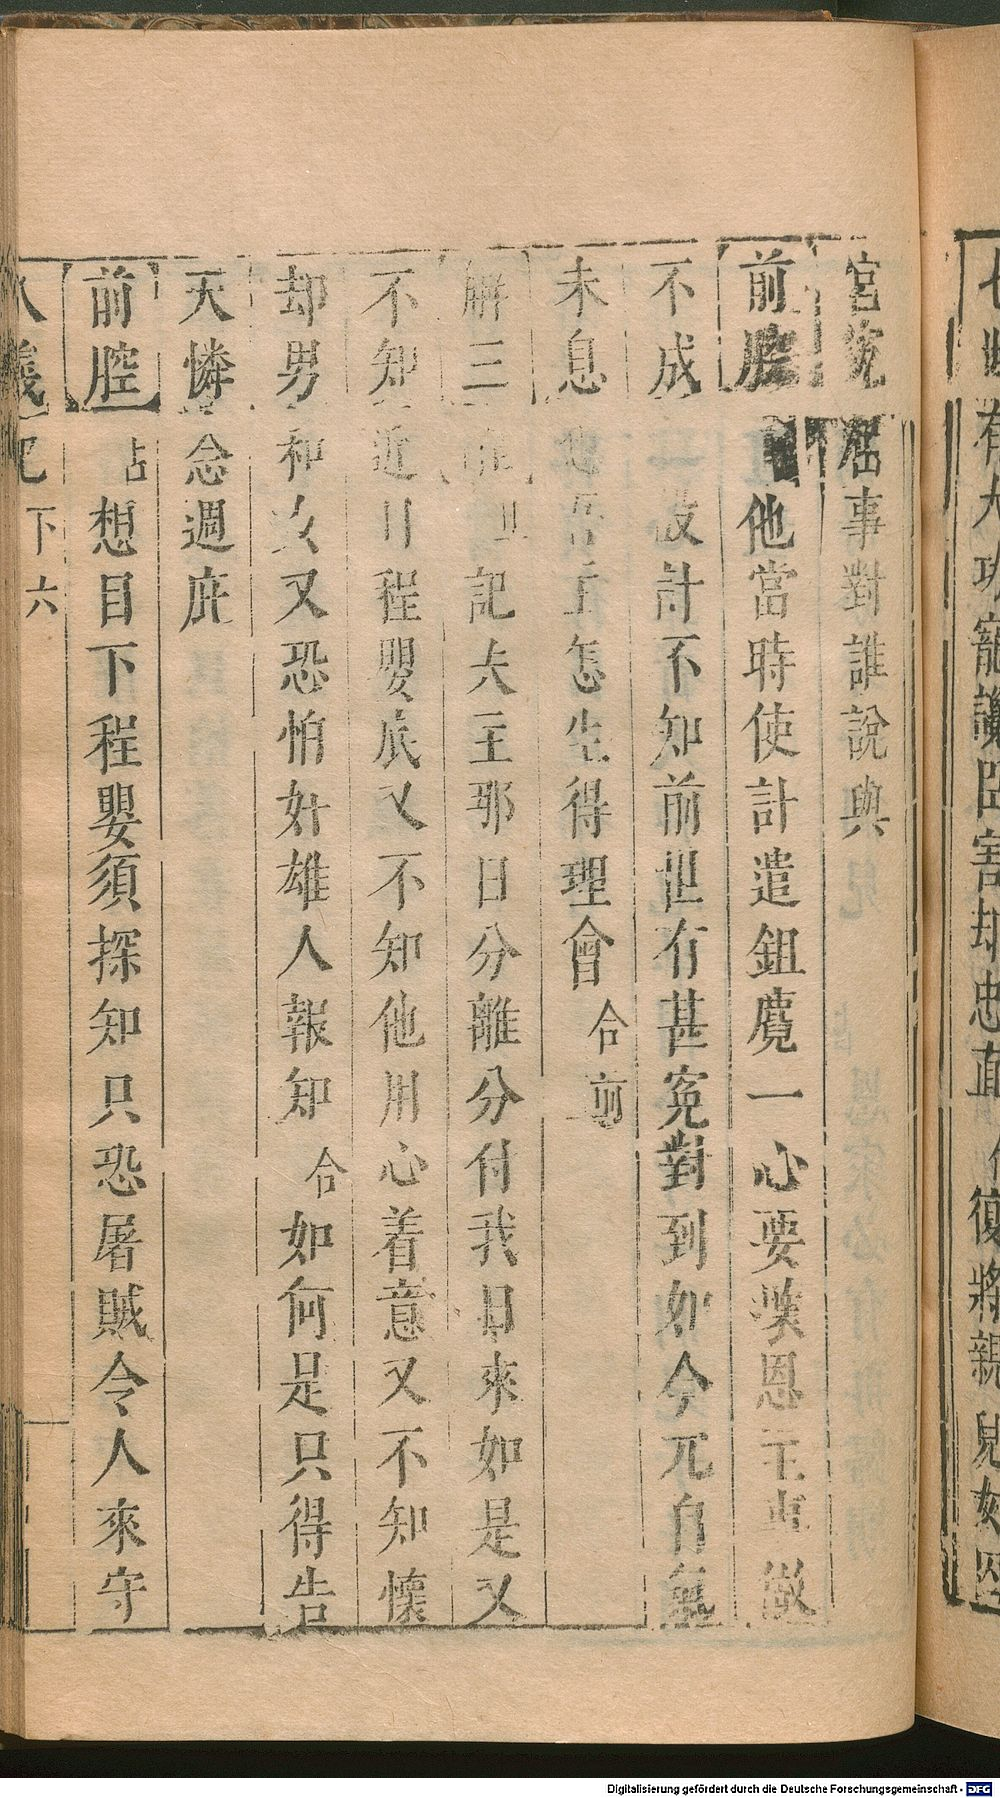 七 有九 寵讒臣害却忠直 復將親兒女
宮苑屈事對誰說與
前腔 他當時使計遣鉏麑一心要 恩主 做
不成 一設計不知前世有甚冤對到如今冗自氣
未息 怎生得理會合前
解三酲旦記夫主那日分離分付我 日來如是又
不知近日程嬰底又不知他用心着意又不知懷
却男和女又恐怕奸雄人報知合如何是只得告
天憐念週庇
前腔占想目下程嬰須探知只恐屠賊令人來守
八義記 下 六
Digitalisierung gefördert durch die Deutsche Forschungsgemeinschaft - DFG